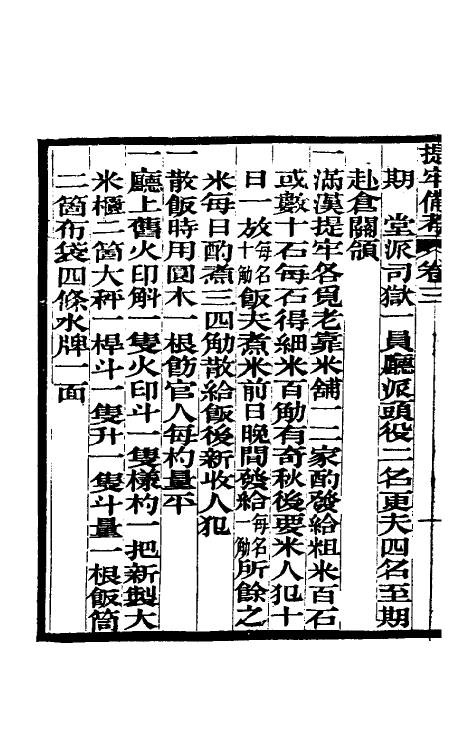 提牢備考 卷三
期 堂派司獄一員廳派頭役二名更夫四名至期
赴倉關領
一滿漢提牢各覓老靠米舖一二家酌發給粗米百石
或數十石每石得細米百觔有奇秋後要米人犯十
日一放每名十觔飯夫煮米前日晚間發給每名一觔所餘之
米每日酌煮三四觔散給飯後新收人犯
一散飯時用圓木一根飭官人每杓量平
一廳上舊火印斛一隻火印斗一隻樣杓一把新製大
米櫃二箇大秤一桿斗一隻升一隻斗量一根飯筒
二箇布袋四條水牌一面